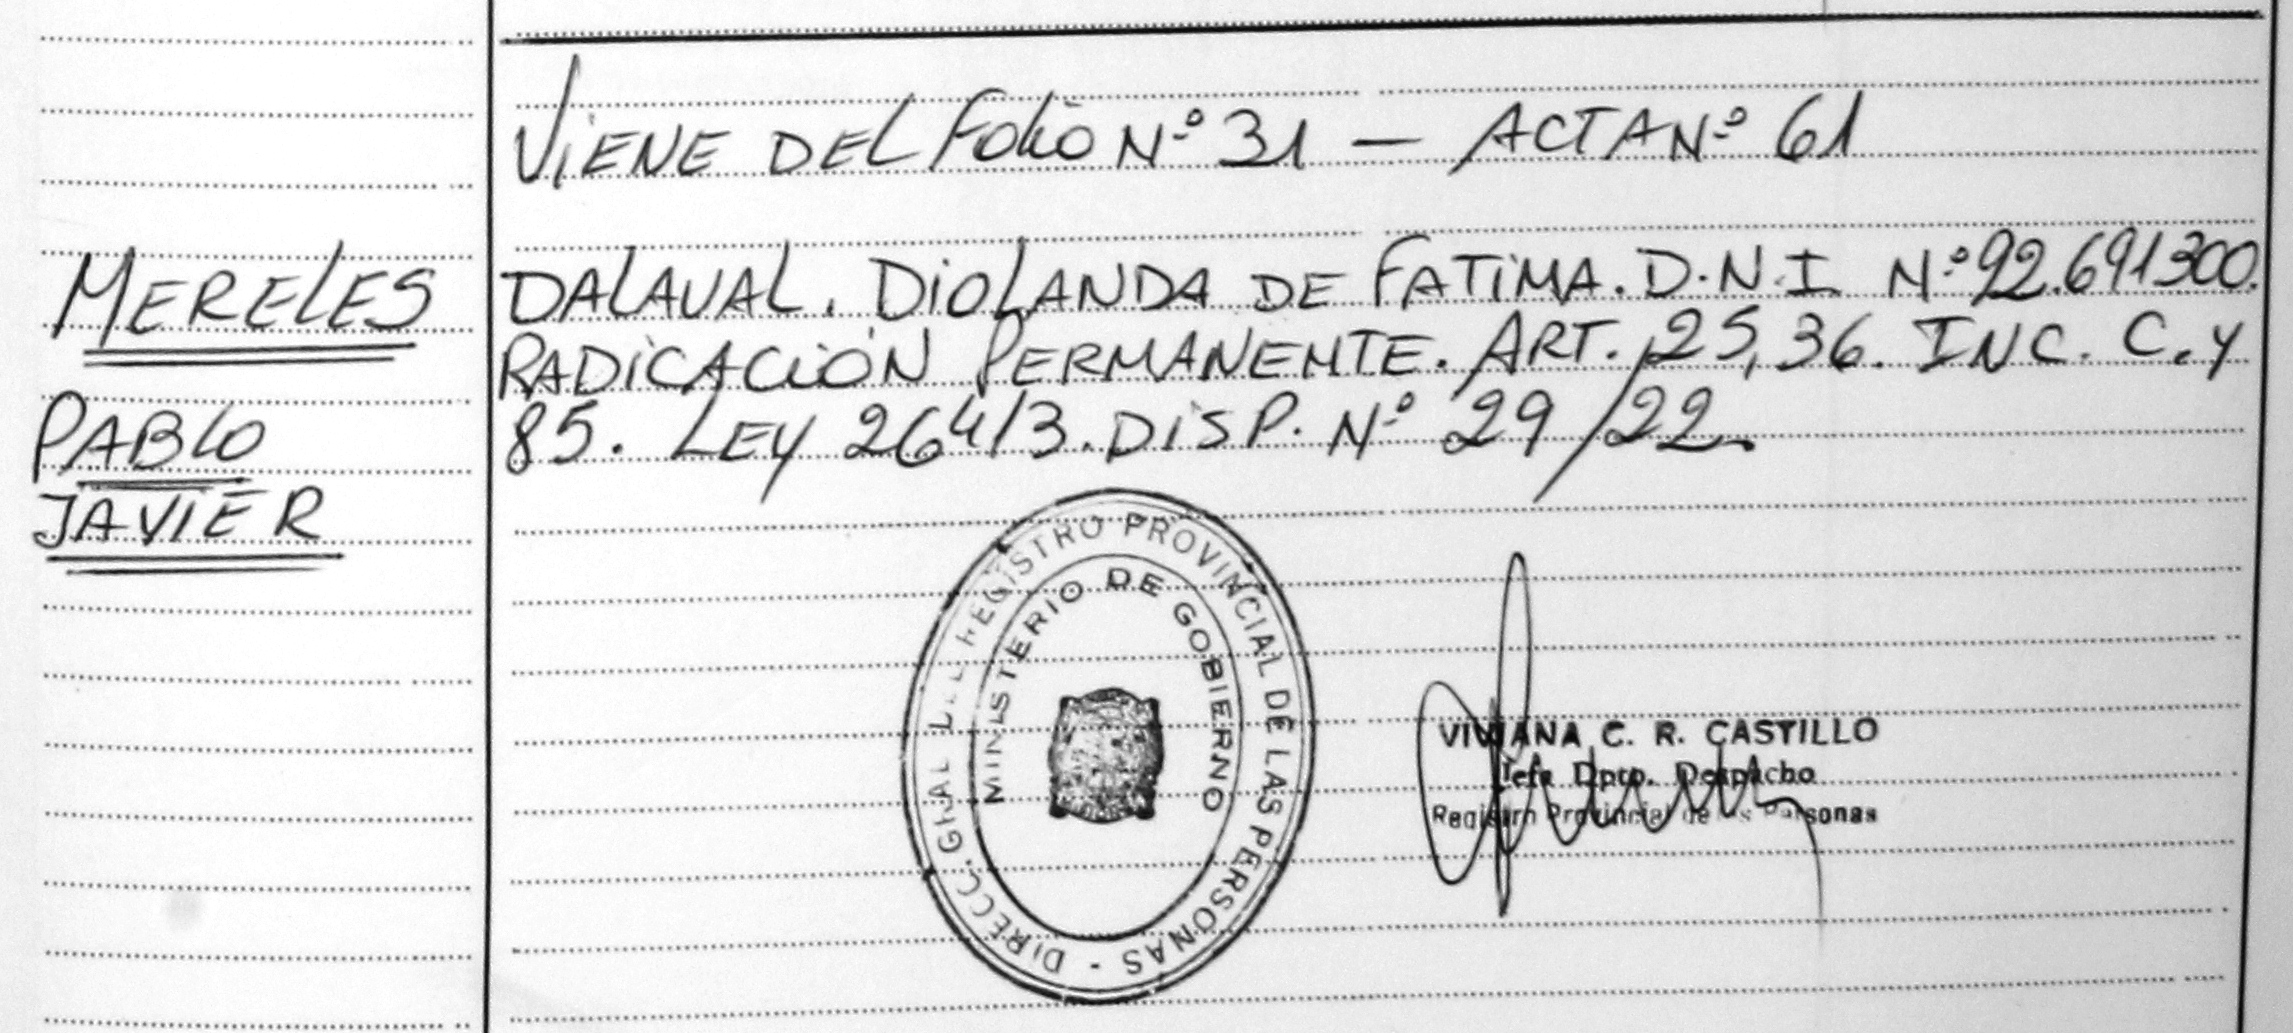 VIENE DEL FOLIO Nº 31 — ACTA Nº 61
MERELES
PABLO
JAVIER
DALAVAL. DIOLANDA DE FATIMA. D.N.I Nº 92.691300.
RADICACIÓN PERMANENTE. ART. 25, 36. INC. C. Y
85. LEY 26413. DISP. Nº 29/22.
DIRECC. GRAL DEL REGISTRO PROVINCIAL DE LAS PERSONAS -
MINISTERIO DE GOBIERNO
VIVIANA C. R. CASTILLO
Jefa Dpto. Despacho
Registro Provincial de las Personas